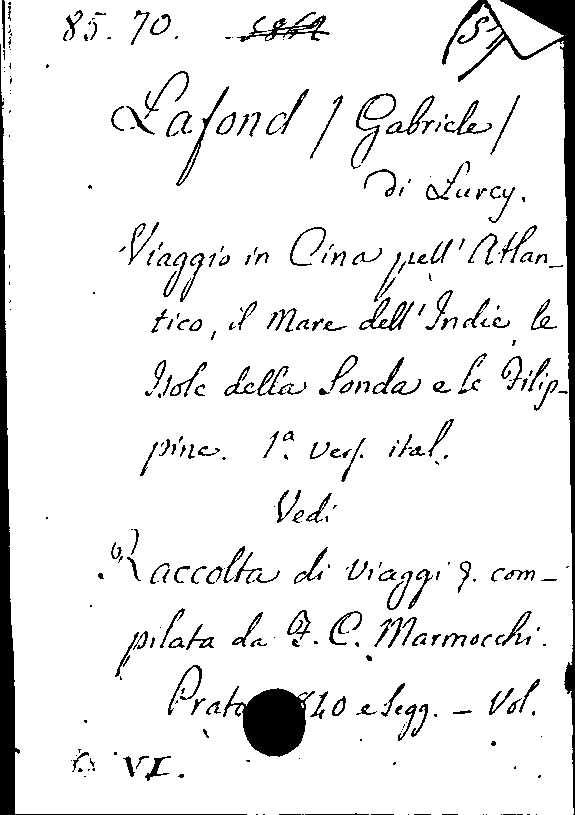 85. 70. 5862 (S)
Lafond / Gabriele /
di Lurcy.
Viaggio in Cina pell' Atlan-
tico, il Mare dell' Indie, le
Isole della Sonda e le Filip-
pine. 1ª vers. ital.
Vedi
Raccolta di viaggi &. com-
pilata da F. C. Marmocchi.
Prato 840 e segg. - Vol.
VI.